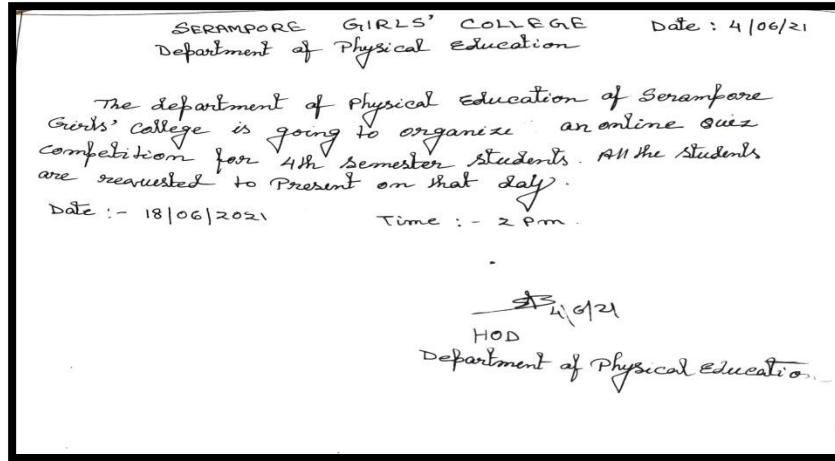 SERAMPORE GIRLS' COLLEGE Date : 4/06/21
Department of Physical Education
The department of Physical Education of Serampore
Girls' college is going to organize an online Quiz
competition for 4th semester students. All the students
are requested to Present on that day.
Date :- 18/06/2021 Time :- 2 Pm.
4/6/21
HOD
Department of Physical Education.